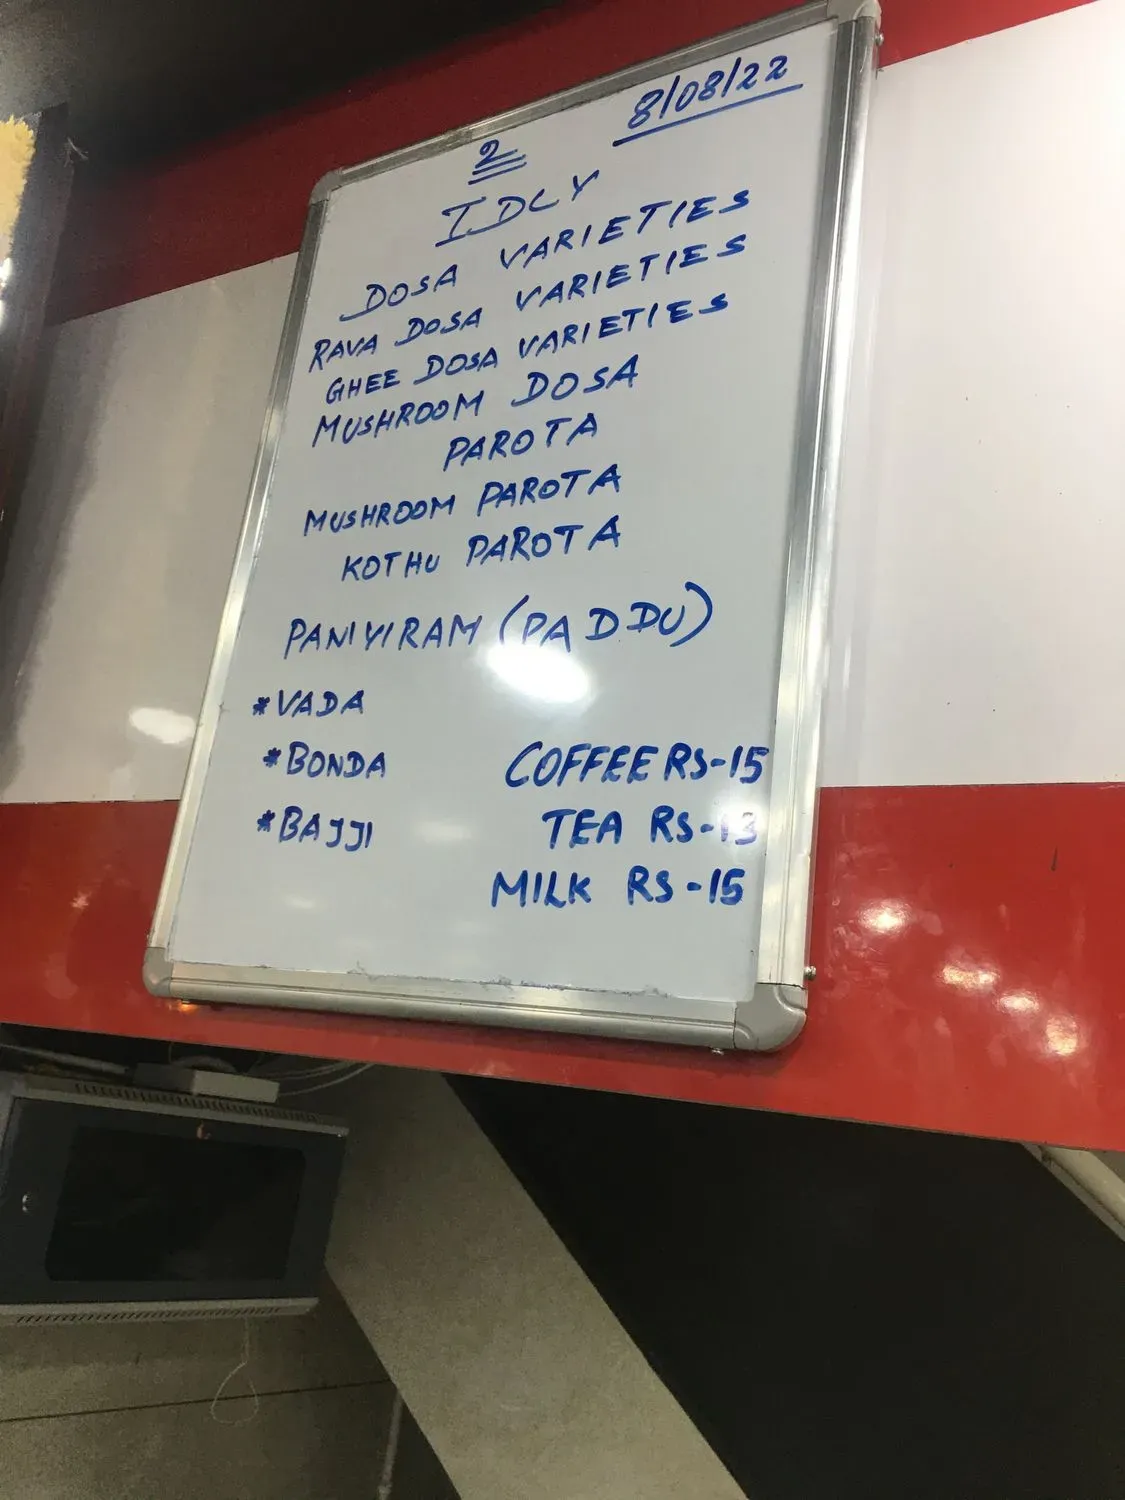 8/08/22
2
IDLY
DOSA VARIETIES
RAVA DOSA VARIETIES
GHEE DOSA VARIETIES
MUSHROOM DOSA
PAROTA
MUSHROOM PAROTA
KOTHU PAROTA
PANIYIRAM (PADDU)
*VADA
*BONDA COFFEE RS-15
*BAJJI TEA RS-13
MILK RS-15